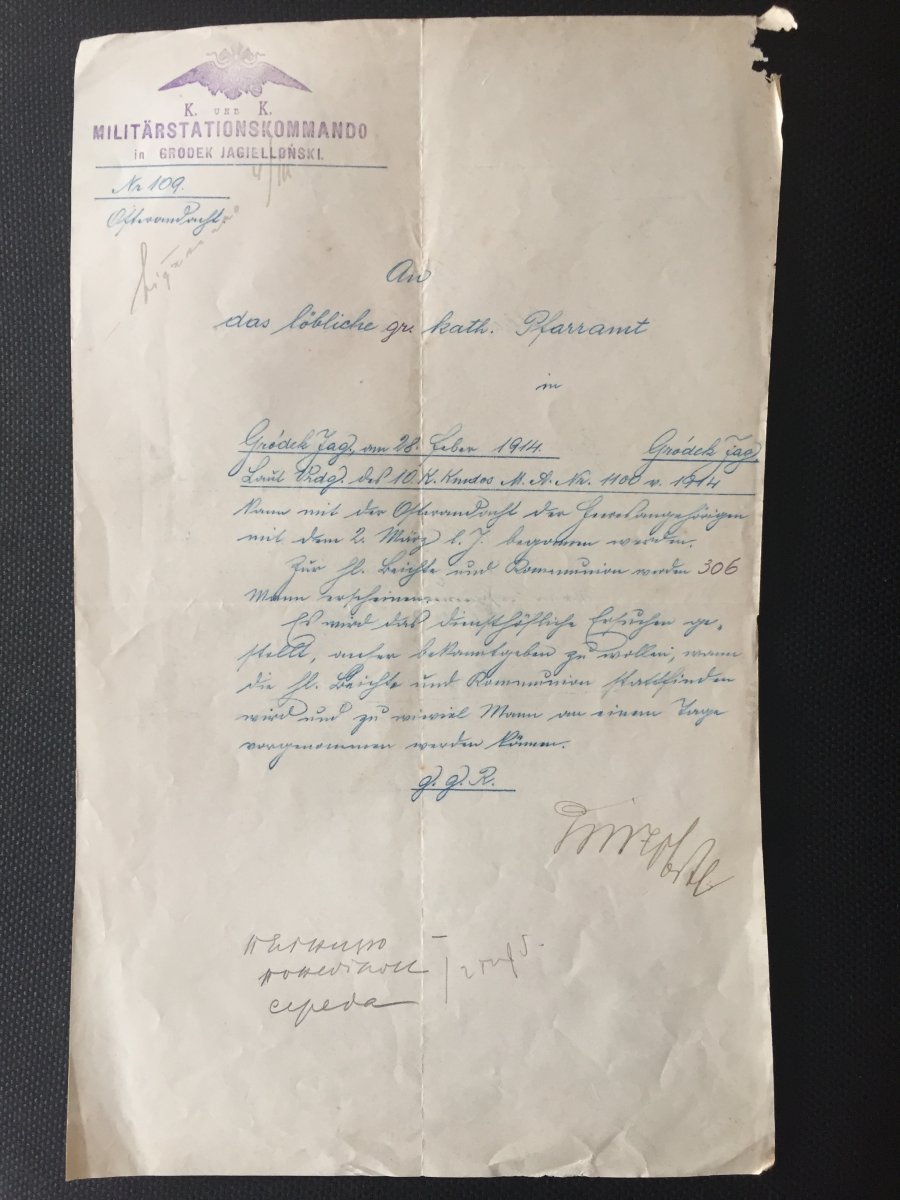 K. UND K.
MILITÄRSTATIONSKOMMANDO
in GRODEK JAGIELLOŃSKI.
4/III
Nr 109.
Osterandacht.
An
das löbliche gr. kath. Pfarramt
in
Gródek Jag., am 28. Feber 1914. Gródek Jag.
Laut Vrdg. des 10. K. Kmdos M. A. Nr. 1400 v. 1914
kann mit der Osterandacht der Heeresangehörigen
mit dem 2. März l. J. begonnen werden.
Zur hl. Beichte und Kommunion werden 306
Mann erscheinen.
Es wird das diensthöfliche Ersuchen ge-
stellt, anher bekanntgeben zu wollen, wann
die hl. Beichte und Kommunion stattfinden
wird und zu wieviel Mann an einem Tage
vorgenommen werden können.
середа